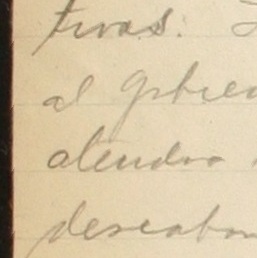 tivas.
al gobier
atendra
deseaban